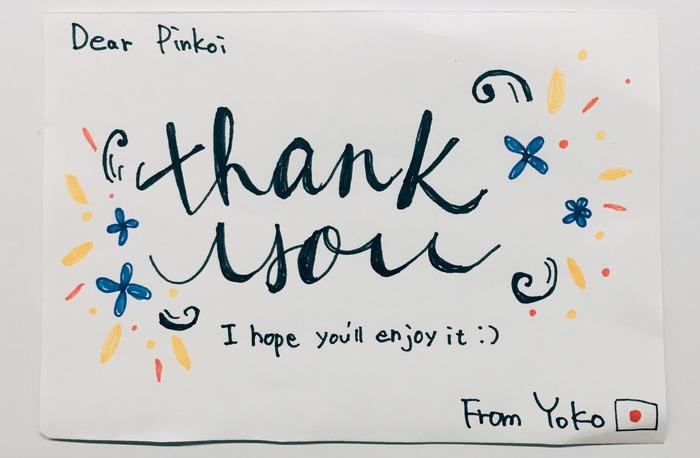 Dear Pinkoi
thank
you
I hope you'll enjoy it :)
From Yoko